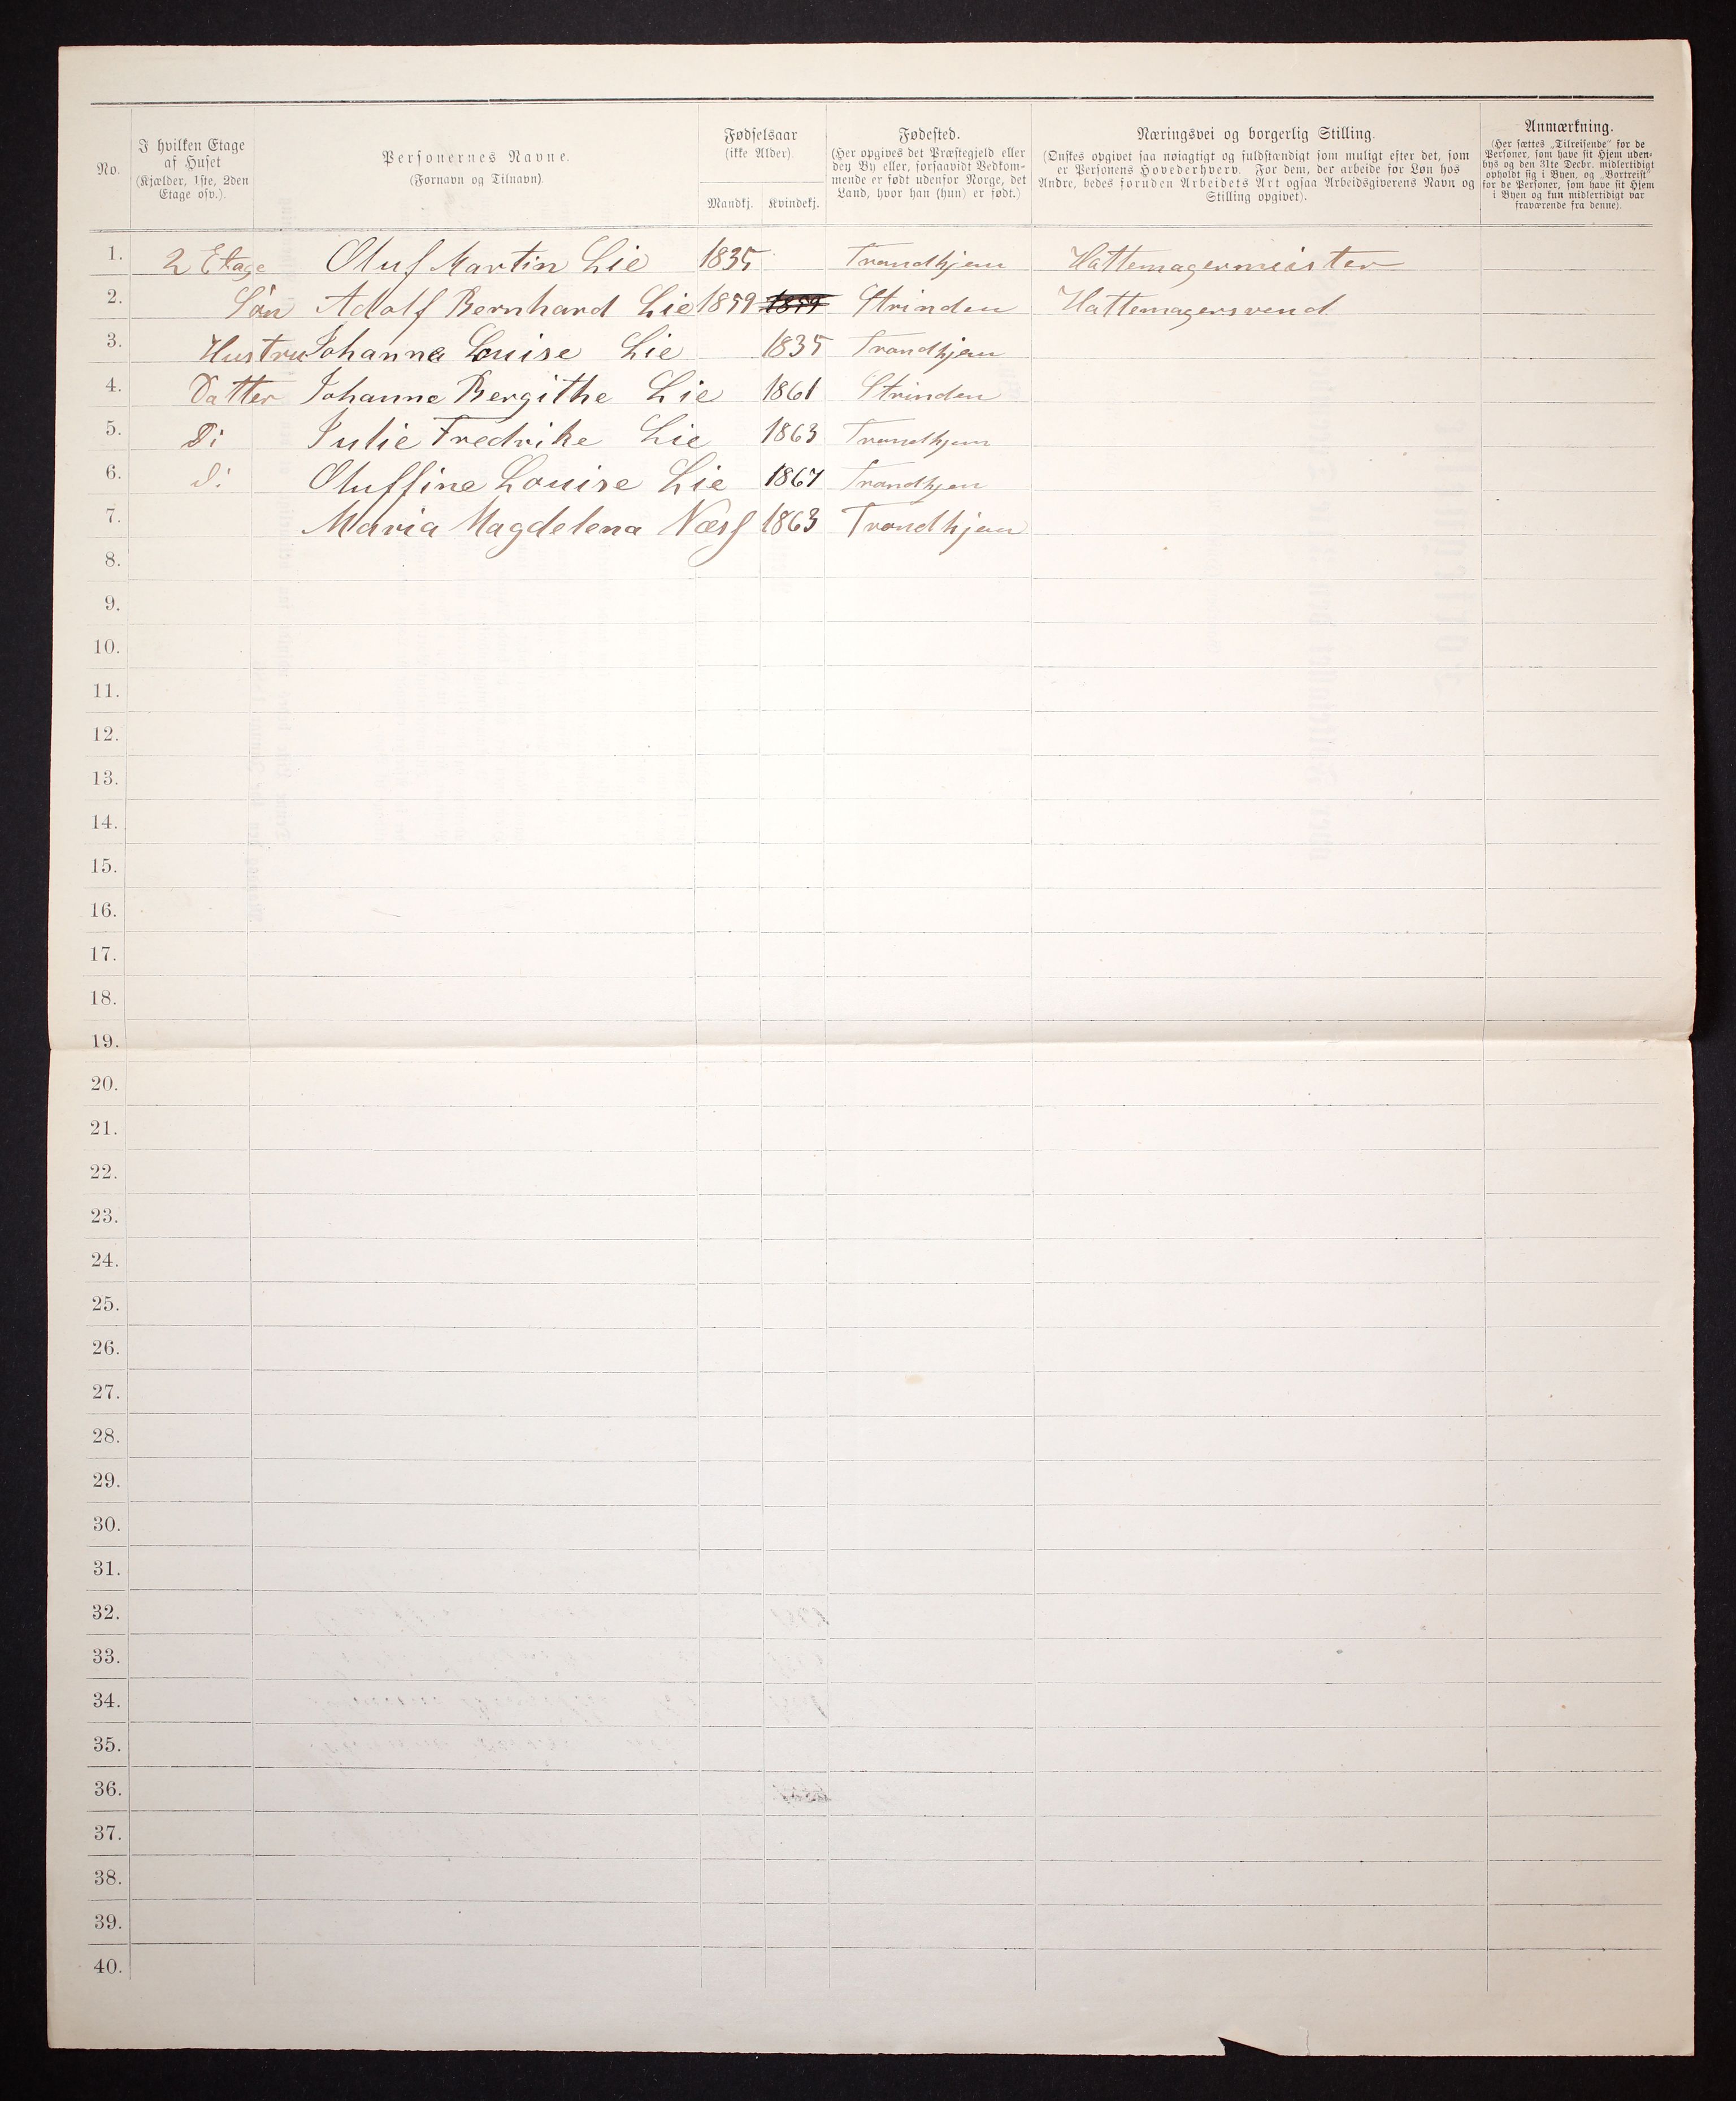 No.
I hvilken Etage af Huset (Kjælder, 1ste, 2den Etage osv.).
Personernes Navne. (Fornavn og Tilnavn)
Fødselsaar (ikke Alder).
Mandkj. Kvindekj.
Fødested. (Her opgives det Præstegjeld eller den By eller, forsaavidt Vedkommende er født udenfor Norge, det Land, hvor han (hun) er født.)
Næringsvei og borgerlig Stilling. (Ønskes opgivet saa nøiagtigt og fuldstændigt som muligt efter det, som er Personens Hovederhverv. For dem, der arbeide for Løn hos Andre, bedes foruden Arbeidets Art ogsaa Arbeidsgiverens Navn og Stilling opgivet).
Anmærkning. (Her sættes „Tilreisende" for de Personer, som have sit Hjem udenbys og den 31te Decbr. midlertidigt opholdt sig i Byen, og „Bortreist" for de Personer, som have sit Hjem i Byen og kun midlertidigt var fraværende fra denne).
1. 2 Etage Oluf Martin Lie 1835 Trondhjem Hattemagermeister
2. Søn Adolf Bernhard Lie 1859 1859 Strinden Hattemagersvend
3. Hustru Johanna Louise Lie 1835 Trondhjem
4. Datter Johanne Bergithe Lie 1861 Strinden
5. D: Julie Fredrike Lie 1863 Trondhjem
6. d: Oluffine Louise Lie 1867 Trondhjem
7. Maria Magdelena Næss 1863 Trondhjem
8.
9.
10.
11.
12.
13.
14.
15.
16.
17.
18.
19.
20.
21.
22.
23.
24.
25.
26.
27.
28.
29.
30.
31.
32.
33.
34.
35.
36.
37.
38.
39.
40.